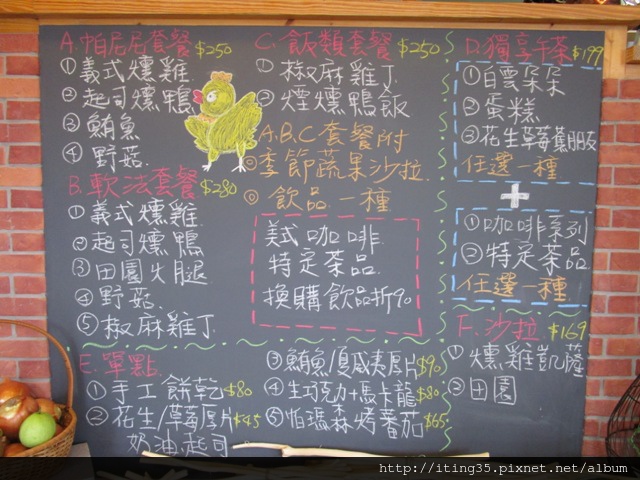 A.帕尼尼套餐 $250
①義式燻雞
②起司燻鴨
③鮪魚
④野菇
B.軟法套餐 $280
①義式燻雞
②起司燻鴨
③田園火腿
④野菇
⑤椒麻雞丁
C.飯類套餐 $250
①椒麻雞丁
②煙燻鴨飯
A.B.C套餐附
◎季節蔬果沙拉.
◎飲品一種
美式咖啡
特定茶品
換購飲品折90
D.獨享午茶 $199
①白雲朵朵
②蛋糕
③花生草莓蕉朋友
任選一種
+
①咖啡系列
②特定茶品
任選一種
E.單點
①手工餅乾 $80
②花生/草莓厚片 $45
奶油起司
③鮪魚/夏威夷厚片 $90
④生巧克力+馬卡龍 $80
⑤帕瑪森烤蕃茄 $65
F.沙拉 $169
①燻雞凱薩
②田園
http://iting35.pixnet.net/album